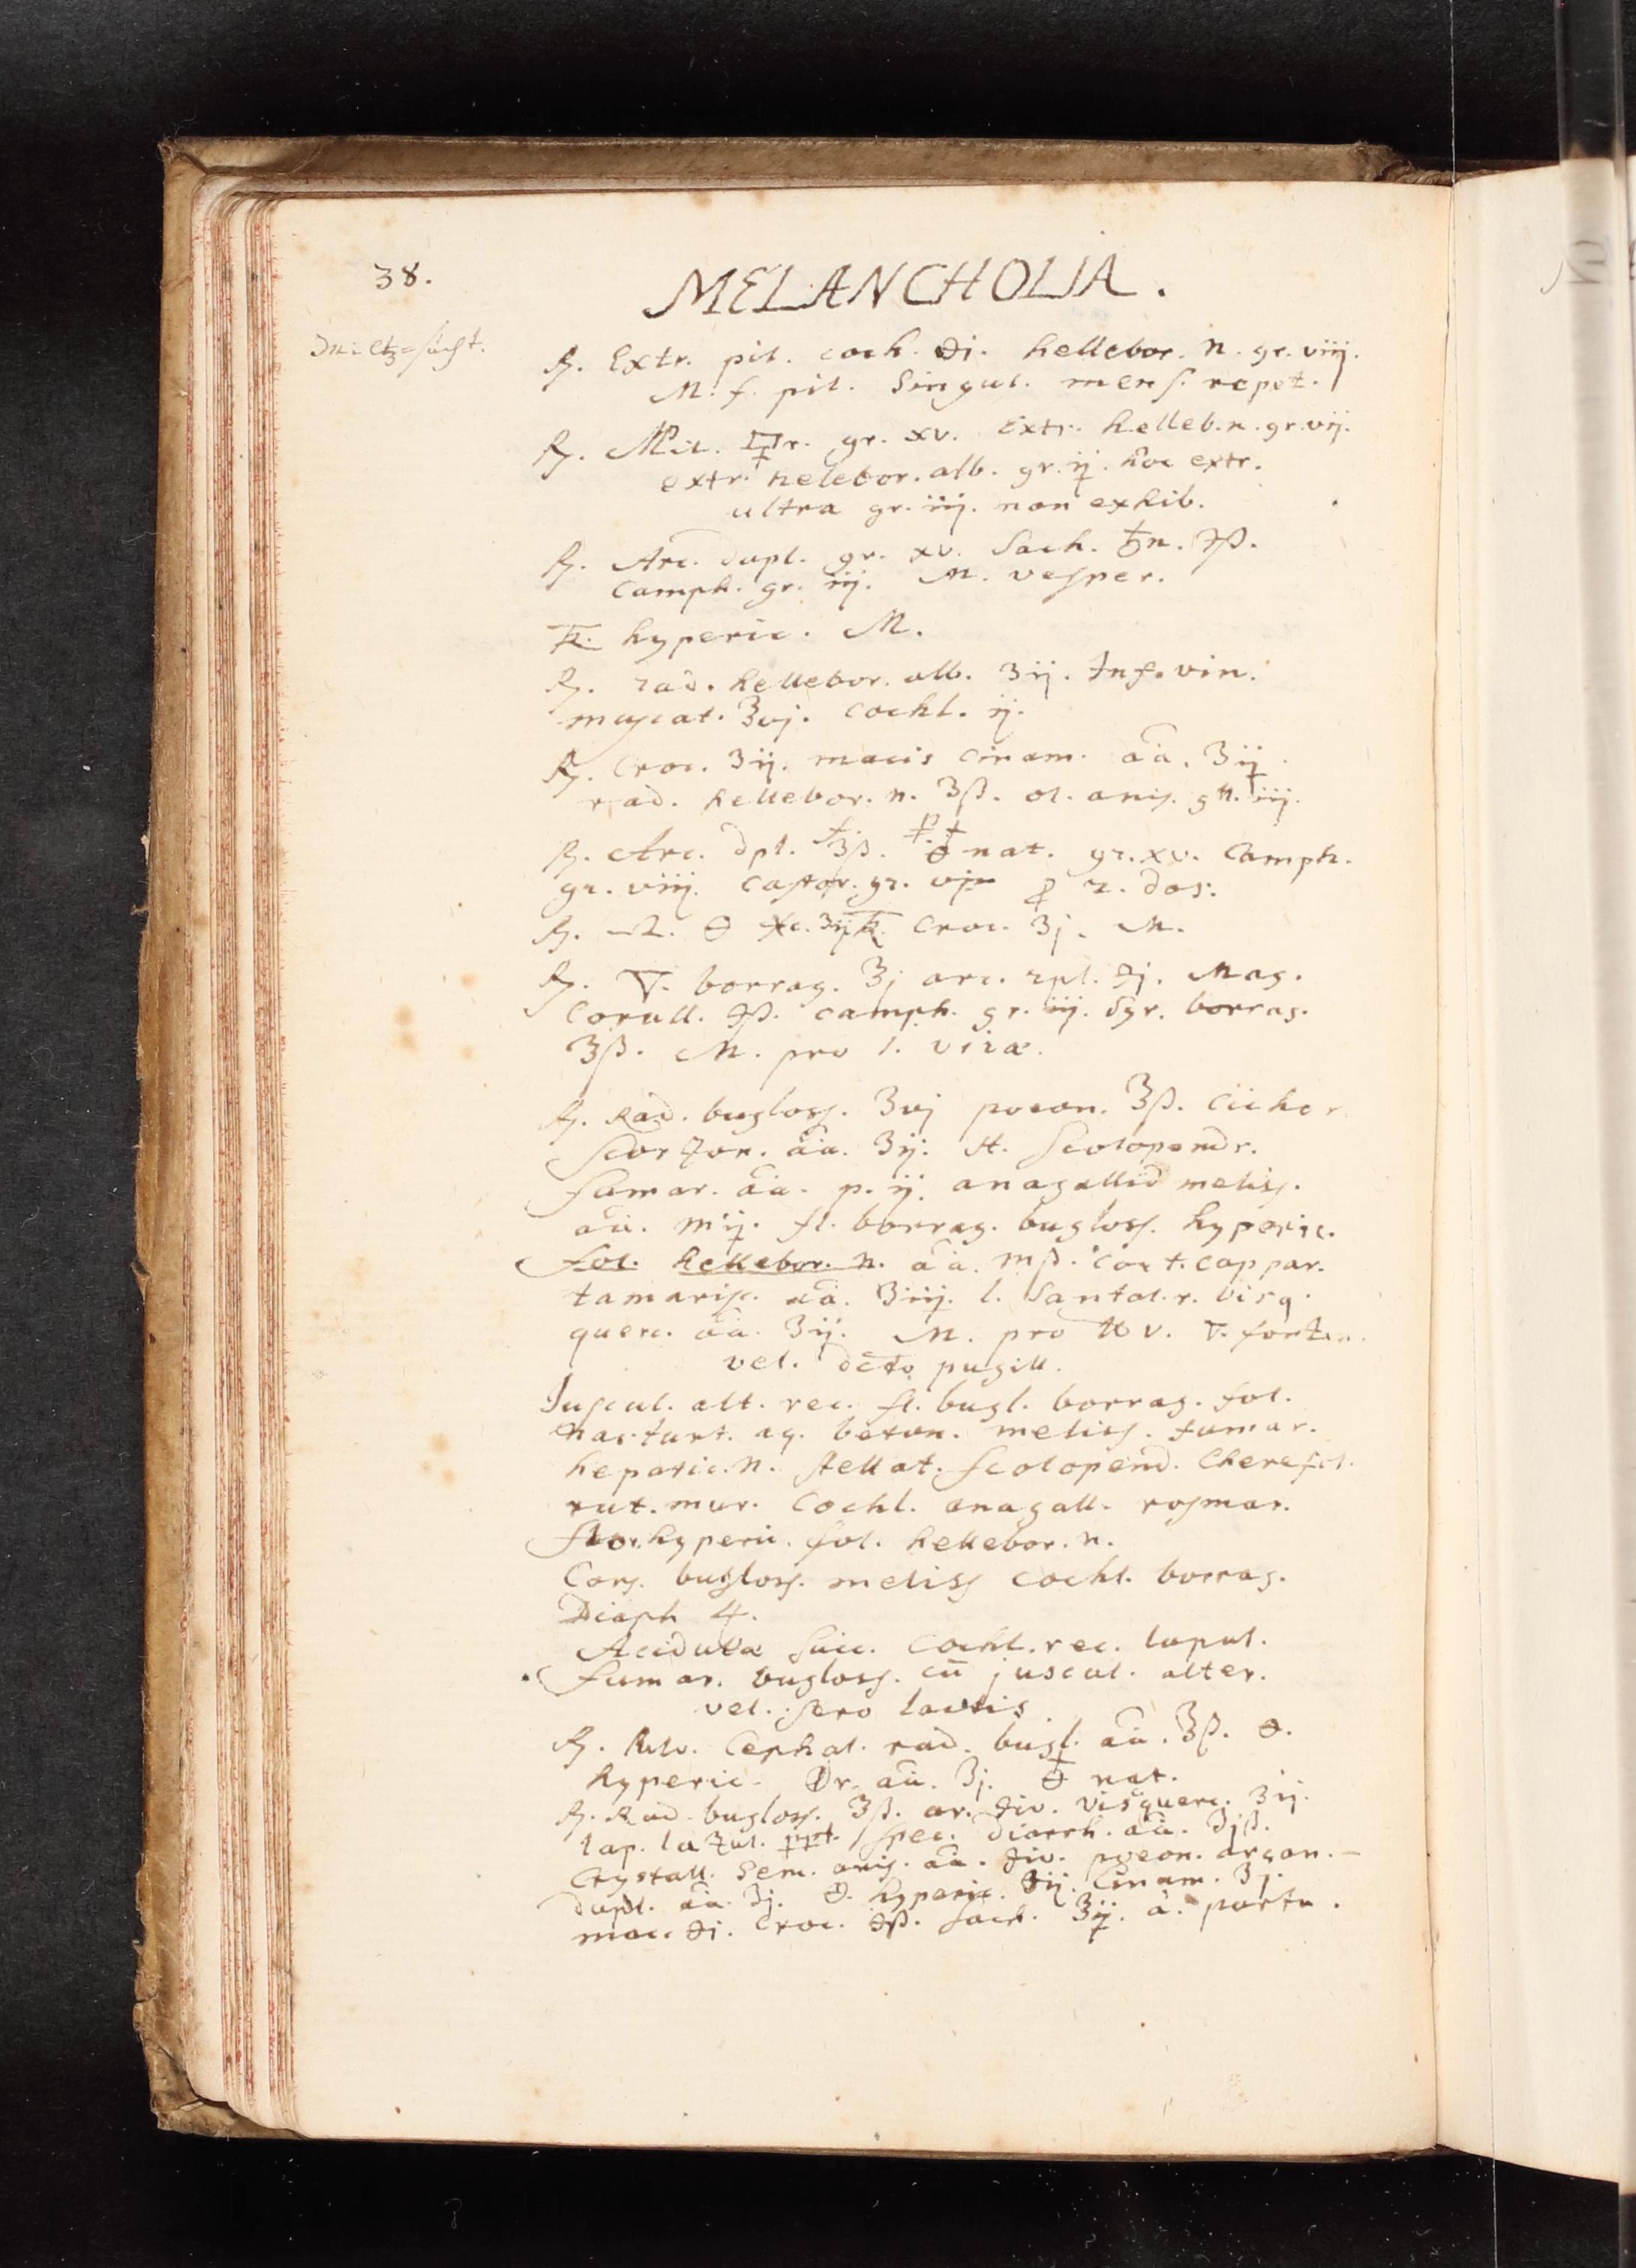 38.
MELANCHOLIA.
Miltz=sucht.
℞. Extr. pil. coch. ℈i. hellebor. n. gr. viij.
M. f. pil. Singul. mens. repet.
℞. gr. xv. Extr. helleb. n. gr. vij.
extr. helebor. alb. gr. ij. hoc extr.
ultra gr. iij. non exhib.
℞. Arc. dupl. gr. xv. Sach. ♄n. ℈ß.
Camph. gr. iij. M. vesper.
hyperic. M.
℞. rad. hellebor. alb. ʒij. Inf. vin.
muscat. ℥vj. cochl. ij.
℞. Croc. ʒij. macis cinam. aā. ʒij
rad. hellebor. n. ʒß. ol. anis. gtt. iij.
℞. Arc. dpl. ʒß. nat. gr. xv. Camph.
gr. viij. Castor. gr. p 2. dos.
℞. croc. ʒj. M.
℞. borrag. ℥j arc. 2pl. ℈j. Mag.
Corall. ℈ß. camph. gr. iij. Syr. borrag.
℥ß. M. pro 1. vice.
℞. Rad. bugloss. ʒvj poeon. ℥ß. Cichor
Scorzon. aā. ʒij. H. Scolopendr.
fumar. aā. p. ij. anagallid meliss.
aā. mij. fl. borrag. bugloss. hyperic.
fol. hellebor. n. aā. mß. Cort. cappar.
tamarisc. aā. ʒiij. l. Santal. r. visq.
querc. aā. ʒij. M. pro ℔ v. fontan.
vel. dcto pugill.
Juscul. alt. rec. fl. bugl. borrag. fol.
nasturt. aq. beton. meliss. fumar.
hepatic. n. stellat. scolopend. Cherefol.
rut. mur. Cochl. anagall. rosmar.
flor. hyperic. fol. hellebor. n.
Cons. bugloss. meliss cochl. borrag.
Diaph
Acidulæ succ. Cochl. rec. lupul.
fumar. bugloss. cū juscul. alter.
vel. sero lactis
℞. Pulv. Cephal. rad. bugl. aā. ℥ß.
hyperic. aā. ʒj. nat.
℞. Rad. bugloss. ℥ß. ar. ℈iv. visquerc. ʒij.
lap. lazul. ppt. spec. diarrh. aā. ʒjß.
Crystall. Sem. anis. aā. ℈iv. poeon. arcan.
dupl. aā. ʒj. hyperic. Cinam. ʒj.
mac. ℈i. Croc. ℈ß. sach. ℥ij. a. partu.